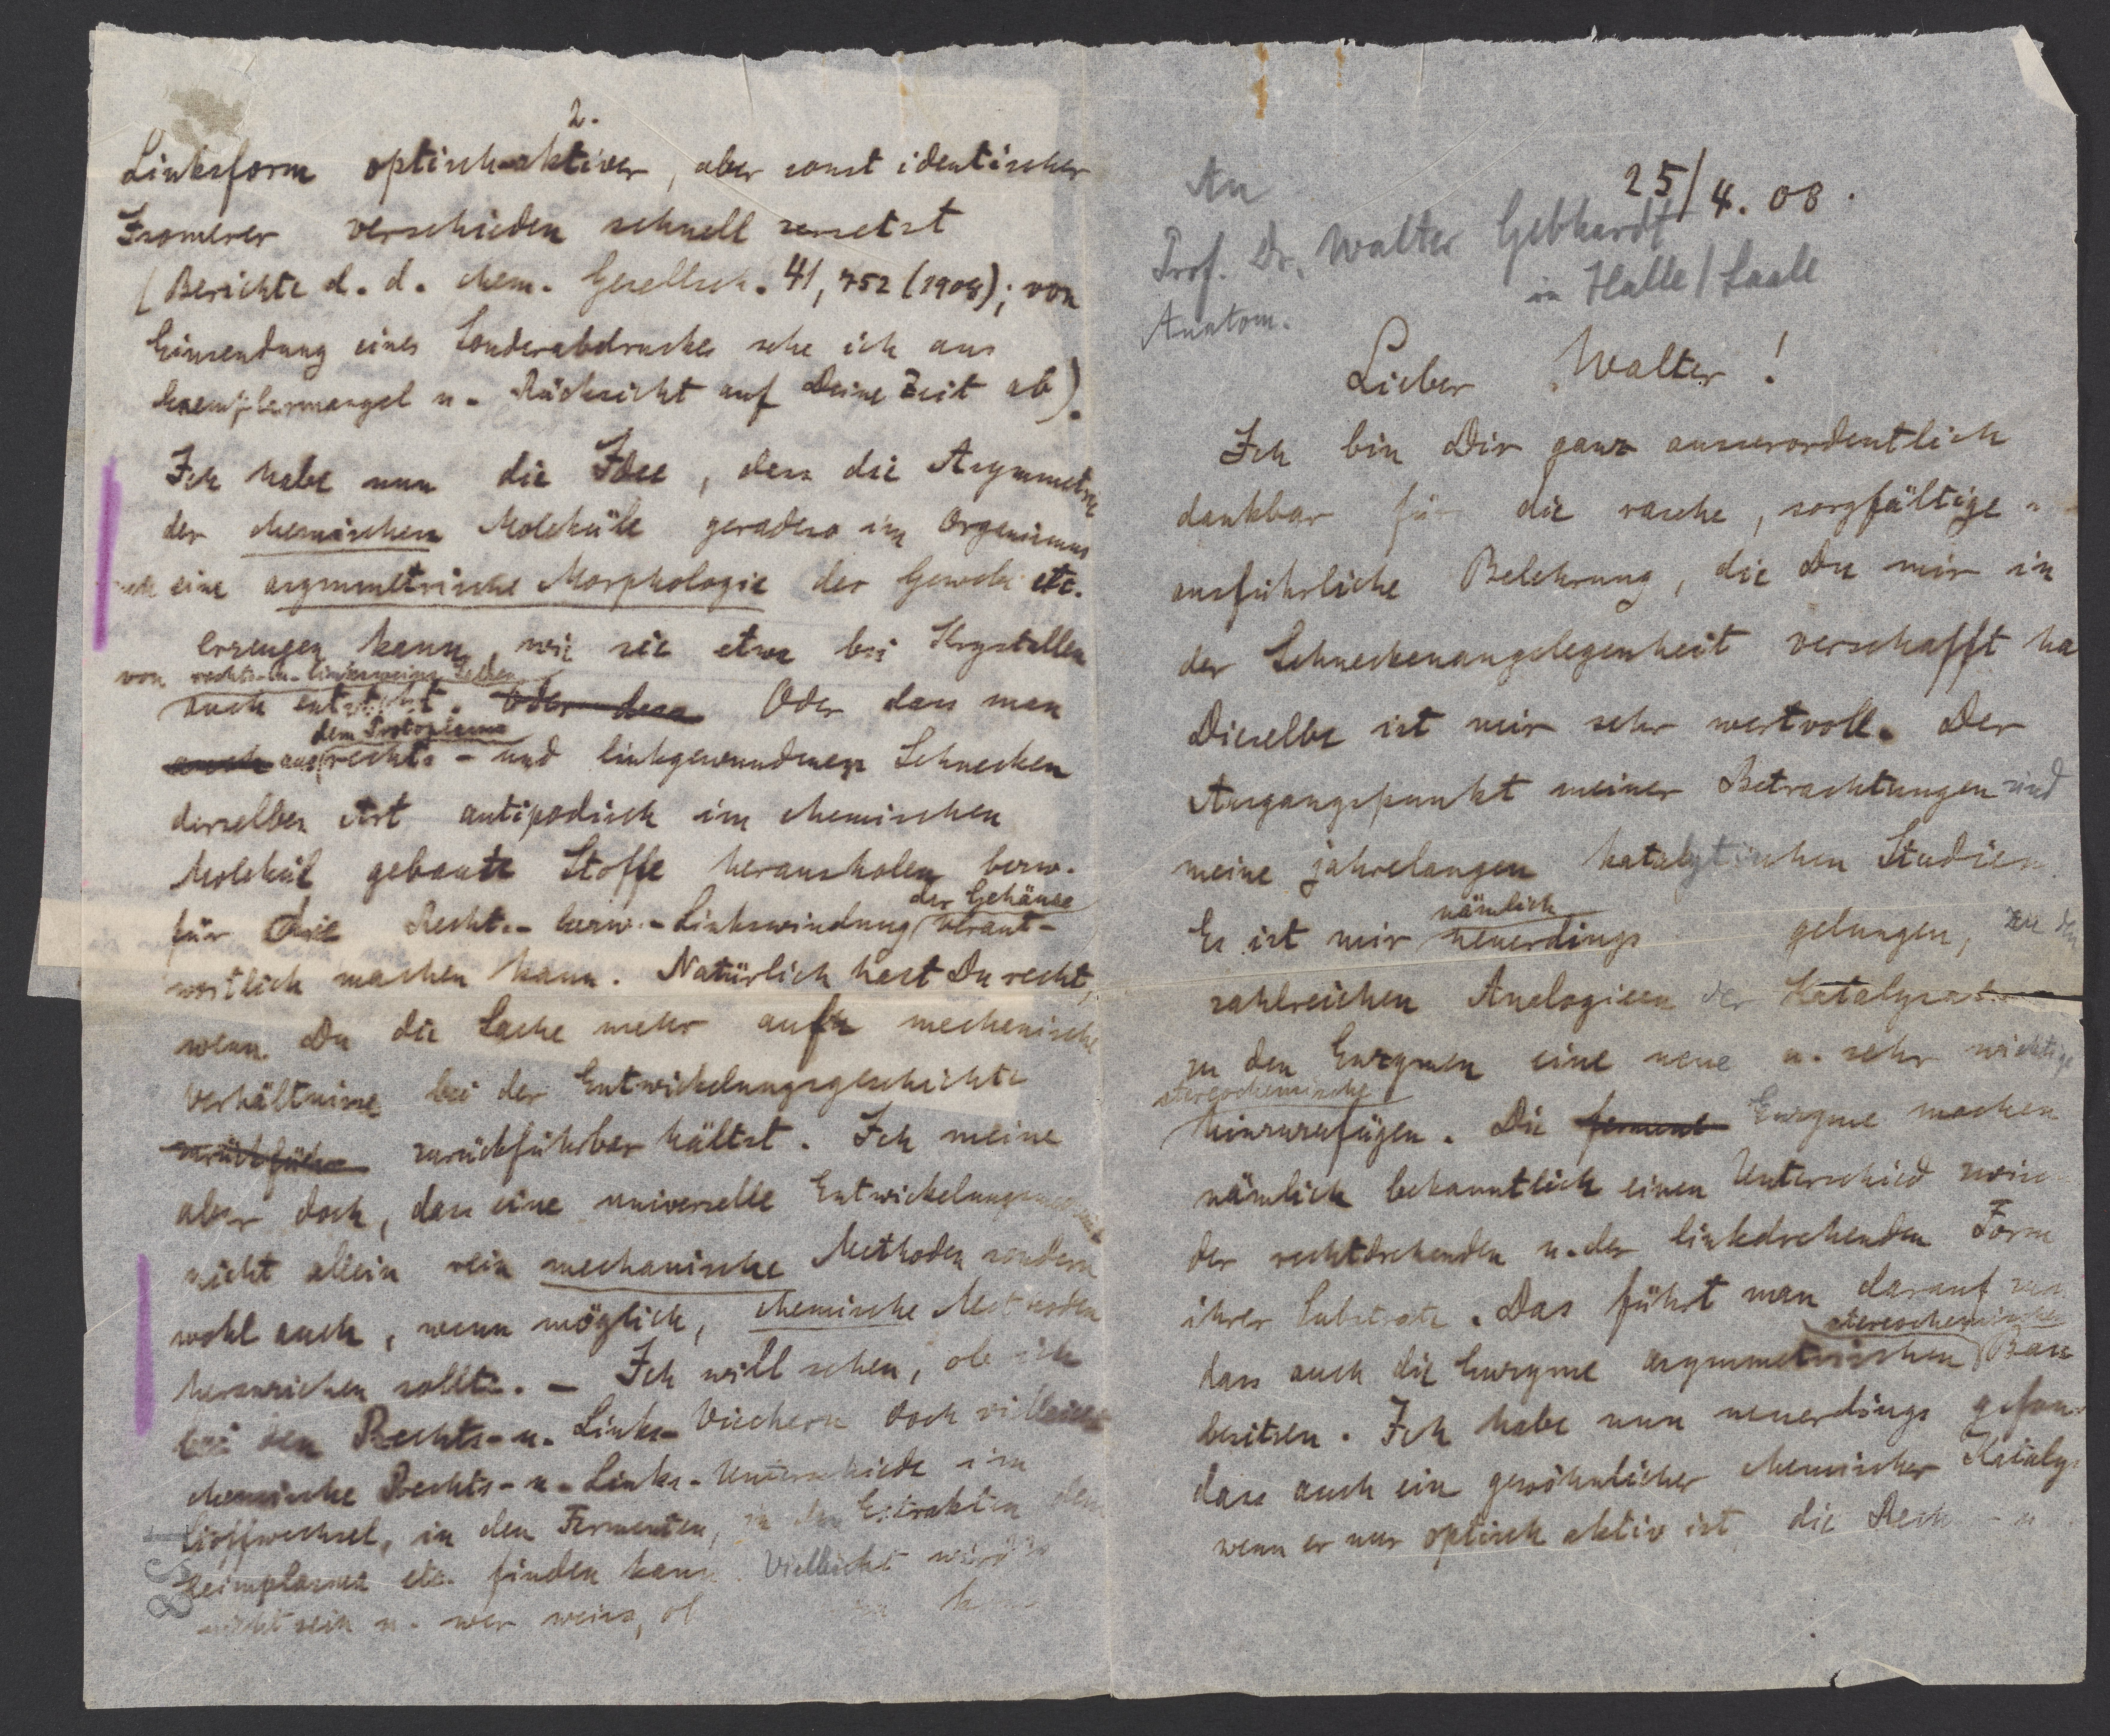 25/4.08.
An
Prof. Dr. Walter Gebhardt
in Halle/Saale
Anatom.
Lieber Walter!
Ich bin Dir ganz ausserordentlich
dankbar für die rasche, sorgfältige u.
ausführliche Belehrung, die Du mir in
der Schneckenangelegenheit verschafft ha
Dieselbe ist mir sehr wertvoll. Der
Ausgangspunkt meiner Betrachtungen sind
meine jahrelangen katalytischen Studien.
Es ist mir nämlich neuerdings gelungen, zu den
zahlreichen Analogieen der Katalysat
zu den Enzymen eine neue u. sehr wichtige
stereochemische
hinzuzufügen. Die ferment Enzyme machen
nämlich bekanntlich einen Unterschied zwisc
der rechtdrehenden u. der linkdrehenden Form
ihrer Substrate. Das führt man darauf
dass auch die Enzyme asymmetrischen stereochemischen Bau
besitzen. Ich habe nun neuerdings gefun
dass auch ein gewöhnlicher chemischer Kataly
wenn er nur optisch aktiv ist, die Rech - u
2.
Linksform optisch-aktiver, aber sonst identischer
Isomerer verschieden schnell zersetzt
(Berichte d. d. chem. Gesellsch. 41, 752 (1908); von
Einsendung eines Sonderabdruckes sehe ich aus
Exemplarmangel u. Rücksicht auf Deine Zeit ab).
Ich habe nun die Idee, dass die Asymmetrie
der chemischen Moleküle geradeso im Organismus
auch eine asymmetrische Morphologie der Gewebe etc.
erzeugen kann, wie sie etwa bei Krystallen
von rechts- u. linksweinsr. Salzen
auch entsteht. Oder dass Oder dass man
auch aus dem Protoplasma rechts- und linkgewundener Schnecken
derselben Art antipodisch im chemischen
Molekül gebaute Stoffe herausholen bezw.
für die Rechts- bezw.- Linkswindung der Gehäuse verant-
wortlich machen kann. Natürlich hast Du recht,
wenn Du die Sache mehr auf mechanische
Verhältnisse bei der Entwickelungsgeschichte
zurückführ zurückführbar hältst. Ich meine
aber doch, dass eine universelle
nicht allein rein mechanische Methoden sondern
wohl auch, wenn möglich, chemische Methoden
heranziehen sollte. – Ich will sehen, ob ich
bei den Rechts- u. Links- Viechern doch vielleicht
chemische Rechts- u. Links-Unterschiede im
Stoffwechsel, in den Fermenten, in den Extrakten des
Keimplasmas etc. finden kann. Vielleicht wird's
nicht sein u. wer weiss, ob